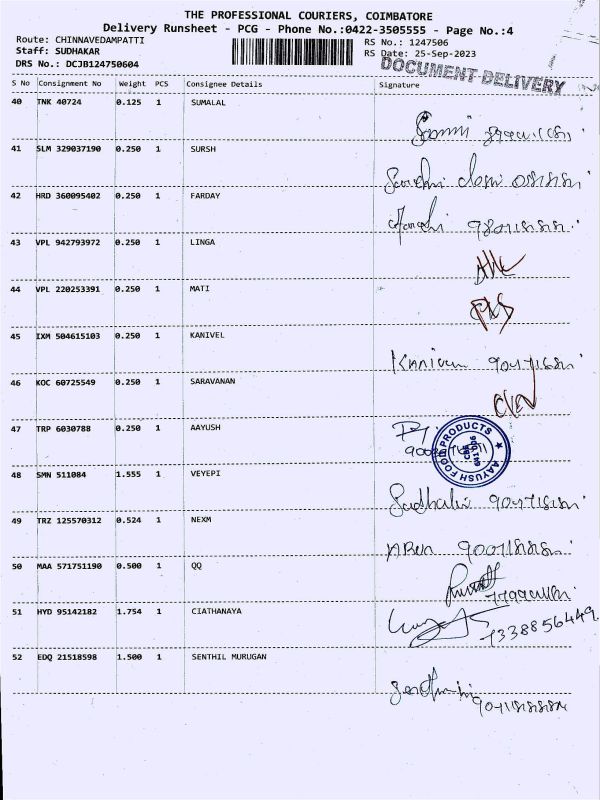 THE PROFESSIONAL COURIERS, COIMBATORE
Delivery Runsheet - PCG - Phone No.:0422-3505555 - Page No.:4
Route: CHINNAVEDAMPATTI
RS No.: 1247506
Staff: SUDHAKAR
RS Date: 25-Sep-2023
DRS No.: DCJB124750604
DOCUMENT DELIVERY
S No Consignment No Weight PCS Consignee Details Signature
40 TNK 40724 0.125 1 SUMALAL
41 SLM 329037190 0.250 1 SURSH
42 HRD 360095402 0.250 1 FARDAY
43 VPL 942793972 0.250 1 LINGA
44 VPL 220253391 0.250 1 MATI
45 IXM 504615103 0.250 1 KANIVEL
46 KOC 60725549 0.250 1 SARAVANAN
47 TRP 6030788 0.250 1 AAYUSH
AAYUSH FOOD PRODUCTS
48 SMN 511084 1.555 1 VEYEPI
49 TRZ 125570312 0.524 1 NEXM
50 MAA 571751190 0.500 1 QQ
51 HYD 95142182 1.754 1 CIATHANAYA
7338856449
52 EDQ 21518598 1.500 1 SENTHIL MURUGAN